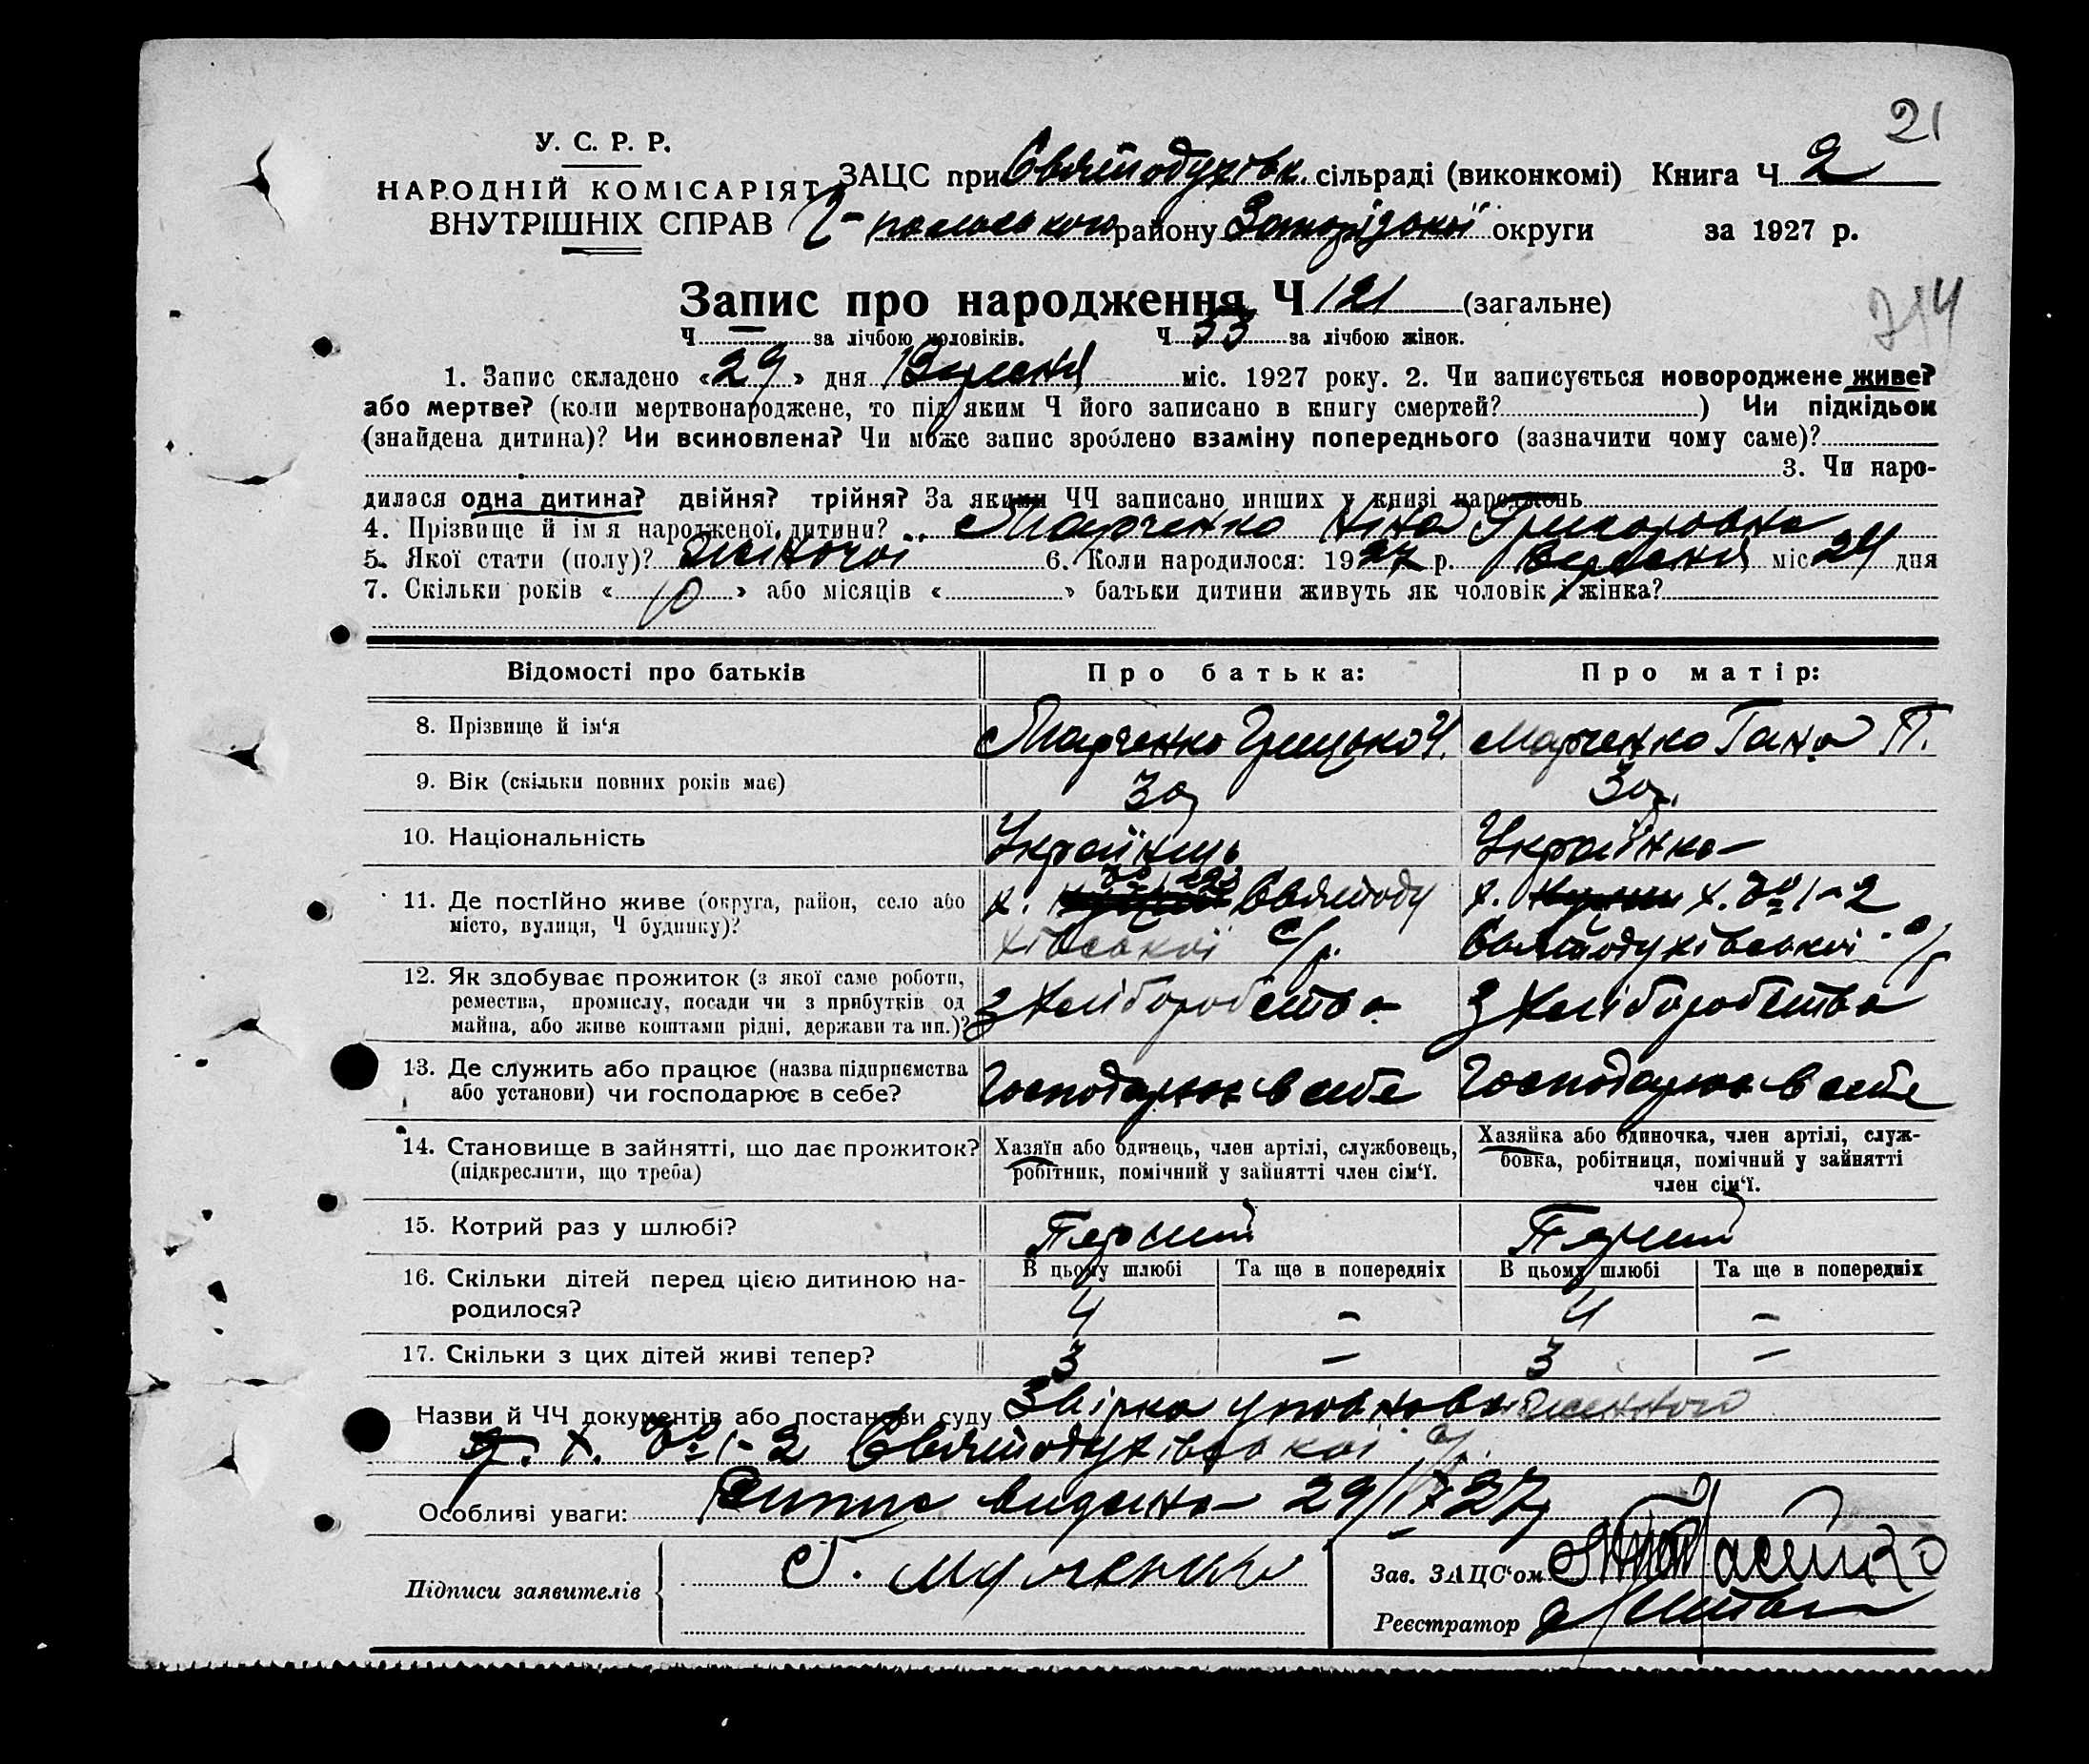 21
У. С. Р. Р.
НАРОДНІЙ КОМІСАРІЯТ
ВНУТРІШНІХ СПРАВ
ЗАЦС при Святодухівськ. сільраді (виконкомі) Книга Ч 2
району Запорізької округи за 1927 р.
Запис про народження Ч 121 (загальне)
714
Ч — за лічбою чоловіків. Ч 53 за лічбою жінок.
1. Запис складено «29» дня Вересня міс. 1927 року. 2. Чи записується новороджене живе?
або мертве? (коли мертвонароджене, то під яким Ч його записано в книгу смертей?) Чи підкідьок
(знайдена дитина)? Чи всиновлена? Чи може запис зроблено взаміну попереднього (зазначити чому саме)?
3. Чи наро-
дилася одна дитина? двійня? трійня? За якими ЧЧ записано инших у книзі народжень
4. Прізвище й ім'я народженої дитини? Марченко Ніна Григоровна
5. Якої стати (полу)? жіночої 6. Коли народилося: 1927 р. Вересня міс 24 дня
7. Скільки років «10» або місяців « » батьки дитини живуть як чоловік і жінка?
Відомості про батьків Про батька: Про матір:
8. Прізвище й ім'я Марченко Грицько Марченко Гана П.
9. Вік (скільки повних років має) 30 30
10. Національність Українець Українка
11. Де постійно живе (округа, район, село або х. Святоду х. х. № 1-2
місто, вулиця, Ч будинку)? хівської с/р. Святодухівської с/р
12. Як здобуває прожиток (з якої саме роботи,
ремества, промислу, посади чи з прибутків од з хліборобства з хліборобства
майна, або живе коштами рідні, держави та ин.)?
13. Де служить або працює (назва підприємства Господарює в себе Господарює в себе
або установи) чи господарює в себе?
14. Становище в зайнятті, що дає прожиток? Хазяїн або одинець, член артілі, службовець, Хазяйка або одиночка, член артілі, служ-
(підкреслити, що треба) робітник, помічний у зайнятті член сім'ї. бовка, робітниця, помічний у зайнятті
член сім'ї.
15. Котрий раз у шлюбі? Перший Перший
16. Скільки дітей перед цією дитиною на- В цьому шлюбі Та ще в попередніх В цьому шлюбі Та ще в попередніх
родилося? 4 — 4 —
17. Скільки з цих дітей живі тепер? 3 — 3 —
Назви й ЧЧ документів або постанови суду Звірка уповноваженного
х. № 1-2 Святодухівської с/р.
Особливі уваги: видано 29/IX 27
Підписи заявителів Г. Марченко
Зав. ЗАЦС'ом
Реєстратор